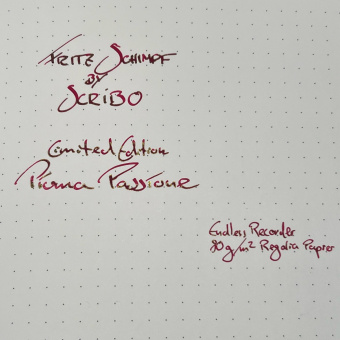 Fritz Schimpf
by
Scribo
Limited Edition
Piuma Passione
Endless Recorder
80g/m² Regalia Papier